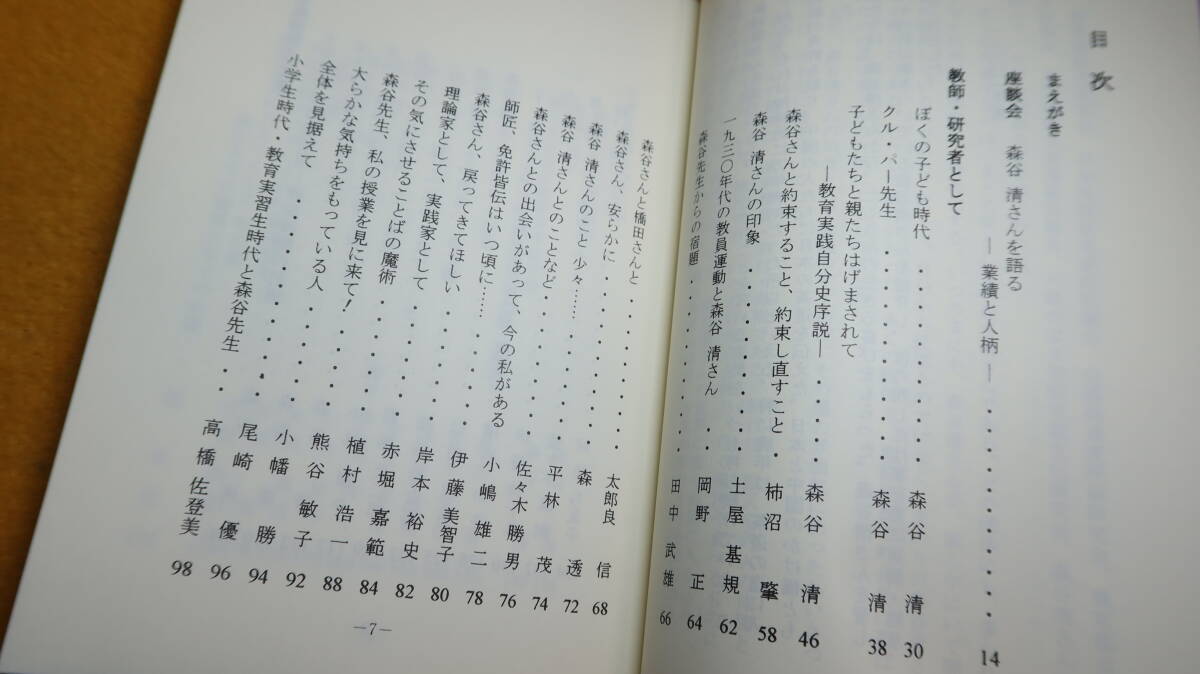 目次
まえがき
座談会 森谷 清さんを語る
―業績と人柄― ・・・・・・・・・・・・ 14
教師・研究者として
ぼくの子ども時代 ・・・・・・・・・・・ 森谷 清 30
クル・パー先生 ・・・・・・・・・・・・ 森谷 清 38
子どもたちと親たちはげまされて
―教育実践自分史序説― ・・・・・ 森谷 清 46
森谷さんと約束すること、約束し直すこと ・ 柿沼 肇 58
森谷 清さんの印象 ・・・・・・・・・・・ 土屋 基規 62
一九三〇年代の教員運動と森谷 清さん ・・ 岡野 正 64
森谷先生からの宿題 ・・・・・・・・・・・ 田中 武雄 66
森谷さんと橋田さんと ・・・・・・・・・・ 太郎良 信 68
森谷さん、安らかに ・・・・・・・・・・・ 森 透 72
森谷 清さんのこと 少々…… ・・・・・・・ 平林 茂 74
森谷 清さんとのことなど ・・・・・・・・ 佐々木 勝男 76
森谷さんとの出会いがあって、今の私がある 小嶋 雄二 78
師匠、免許皆伝はいつ頃に…… ・・・・・・ 伊藤 美智子 80
森谷さん、戻ってきてほしい ・・・・・・・ 岸本 裕史 82
理論家として、実践家として ・・・・・・・ 赤堀 嘉範 84
その気にさせることばの魔術 ・・・・・・・ 植村 浩一 88
森谷先生、私の授業を見に来て! ・・・・・ 熊谷 敏子 92
大らかな気持ちをもっている人 ・・・・・・ 小幡 勝 94
全体を見据えて ・・・・・・・・・・・・・ 尾崎 優 96
小学生時代・教育実習生時代と森谷先生 ・・ 高橋 佐登美 98
―7―